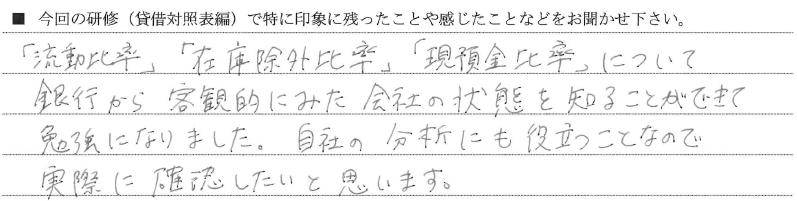 ■ 今回の研修（貸借対照表編）で特に印象に残ったことや感じたことなどをお聞かせ下さい。
「流動比率」「在庫除外比率」「現預金比率」について
銀行から客観的にみた会社の状態を知ることができて
勉強になりました。自社の分析にも役立つことなので
実際に確認したいと思います。